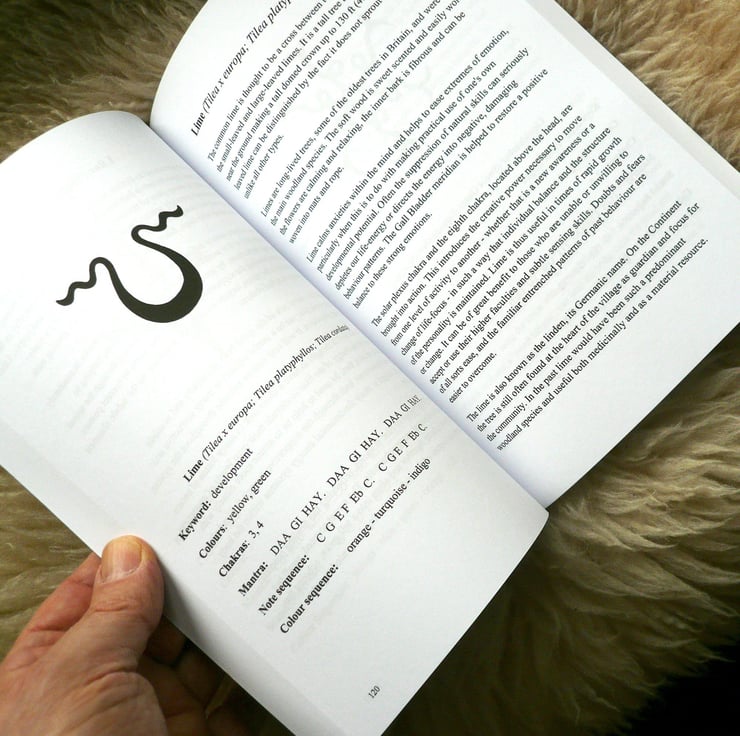 Lime (Tilea x europa; Tilea platyphyllos; Tilea cordata
Keyword: development
Colours: yellow, green
Chakras: 3, 4
Mantra: DAA GI HAY. DAA GI HAY. DAA GI HAY
Note sequence: C G E F Eb C. C G E F Eb C.
Colour sequence: orange - turquoise - indigo
120
Lime (Tilea x europa; Tilea platyph
The common lime is thought to be a cross between
the small-leaved and large-leaved limes. It is a tall tree
near the ground making a tall domed crown up to 130 ft (4
leaved lime can be distinguished by the fact it does not sprou
unlike all other types.
Limes are long-lived trees, some of the oldest trees in Britain, and were
the main woodland species. The soft wood is sweet scented and easily wo
the flowers are calming and relaxing, the inner bark is fibrous and can be
woven into mats and rope.
Lime calms anxieties within the mind and helps to ease extremes of emotion,
particularly when this is to do with making practical use of one's own
developmental potential. Often the suppression of natural skills can seriously
depletes our life-energy or directs the energy into negative, damaging
behaviour patterns. The Gall Bladder meridian is helped to restore a positive
balance to these strong emotions.
The solar plexus chakra and the eighth chakra, located above the head, are
brought into action. This introduces the creative power necessary to move
from one level of activity to another - whether that is a new awareness or a
change of life-focus - in such a way that individual balance and the structure
of the personality is maintained. Lime is thus useful in times of rapid growth
or change. It can be of great benefit to those who are unable or unwilling to
accept or use their higher faculties and subtle sensing skills. Doubts and fears
of all sorts ease, and the familiar entrenched patterns of past behaviour are
easier to overcome.
The lime is also known as the linden, its Germanic name. On the Continent
the tree is still often found at the heart of the village as guardian and focus for
the community. In the past lime would have been such a predominant
woodland species and useful both medicinally and as a material resource.